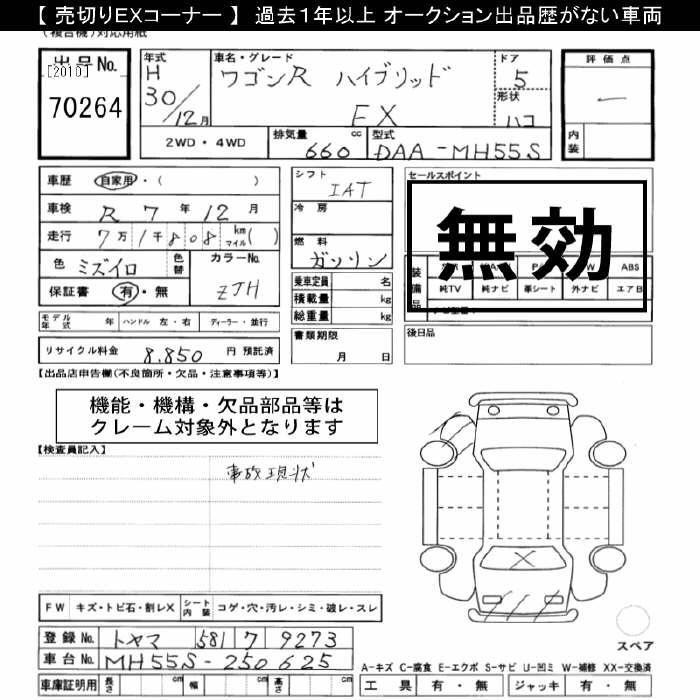 【 売切りEXコーナー 】 過去１年以上 オークション出品歴がない車両
(複合機)対応用紙
出品No.
[2010]
70264
年式
H
30/12月
車名・グレード
ワゴンR ハイブリッド
FX
ドア
5
形状
ハコ
評価点
—
内装
2WD・4WD
排気量
660 cc
型式
DAA-MH55S
車歴 自家用・( )
車検 R 7年 12月
走行 7万1千808 km マイル( )
色 ミズイロ 色替
カラーNo.
ZJH
保証書 有・無
シフト
IAT
冷房
燃料
ガソリン
乗車定員 名
積載量 kg
総重量 kg
セールスポイント
無効
装備品
ABS
純TV 純ナビ 革シート 外ナビ エアB
モデル年式 年 ハンドル 左・右 ディーラー・並行
リサイクル料金 8.850 円 預託済
書類期限
月 日
後日品
【出品店申告欄(不良箇所・欠品・注意事項等)】
機能・機構・欠品部品等は
クレーム対象外となります
【検査員記入】
事故現状
FW キズ・トビ石・割レX シート内装 コゲ・穴・汚レ・シミ・破レ・スレ
登録No. トヤマ 581 ワ 9273
車台No. MH55S-250625
車庫証明用 長さ cm 幅 cm 高さ cm
スペア
A-キズ C-腐食 E-エクボ S-サビ U-凹ミ W-補修 XX-交換済
工具 有・無 ジャッキ 有・無